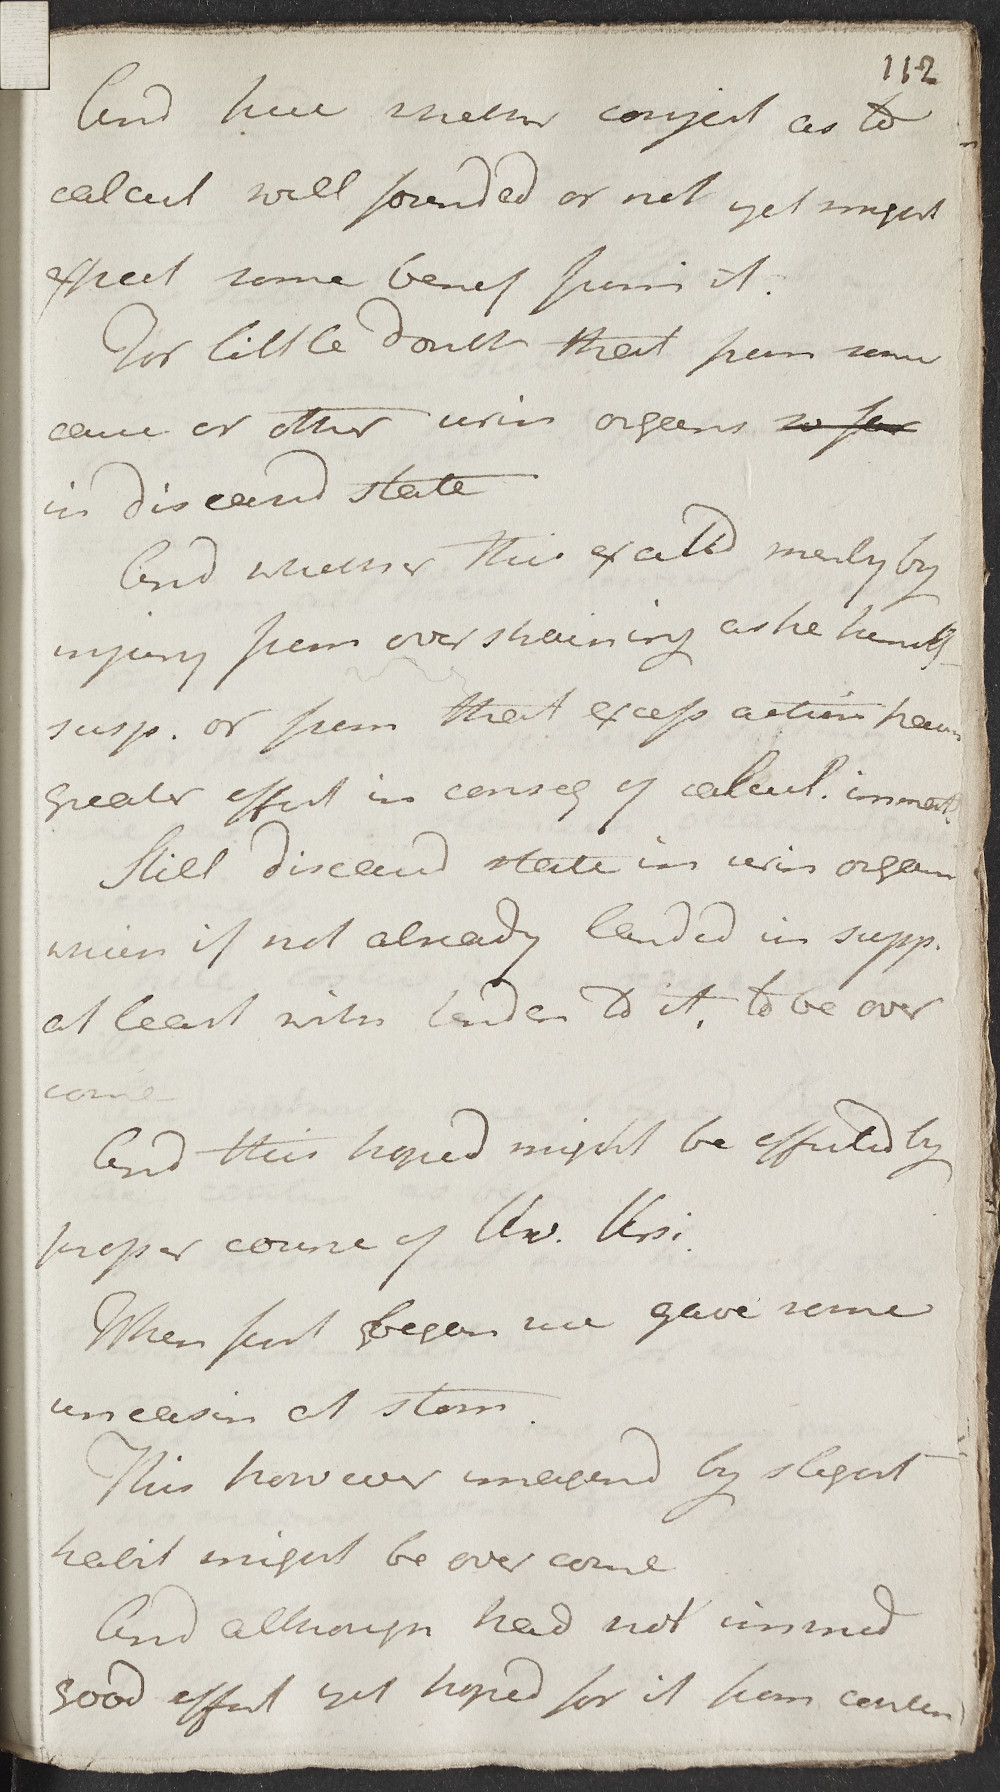 112
And here whether conject as to
calcul well founded or not yet might
expect some benef from it.
For little doubt that from some
cause or other urin organs so far
in diseased state
And whether this excited merely by
injury from over straining as he himself
susp. or from that excess action having
greater effect in conseq of calcul. immed.
Still diseased state in urin organs
which if not already landed in supp.
at least with tenden to it, to be over
come
And this hoped might be effected by
proper course of Uv. Ursi.
When first began use gave some
uneasin at stom.
This however imagend by slight
habit might be over come
And although had not immed
good effect yet hoped for it from contin